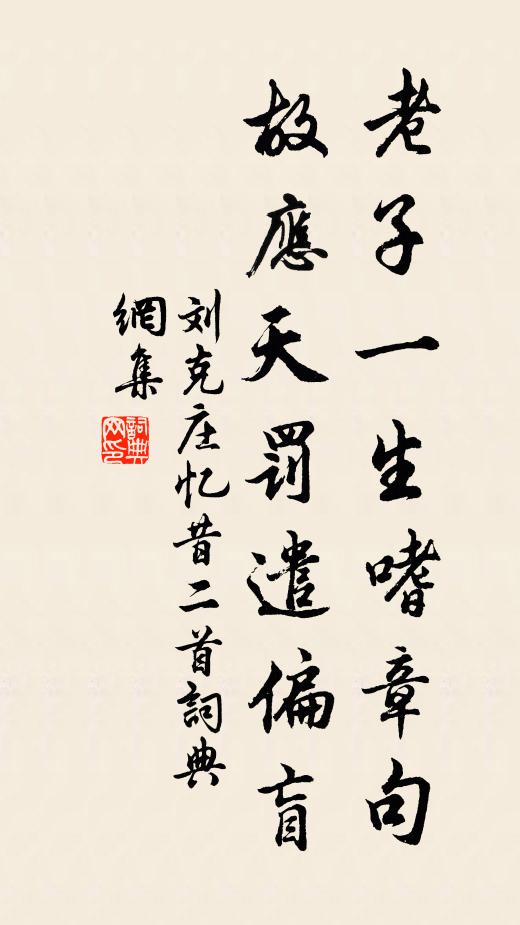 老子一生嗜章句
故應天罰遣偏盲
刘克庄忆昔二首詞典
網集
詞典
网印